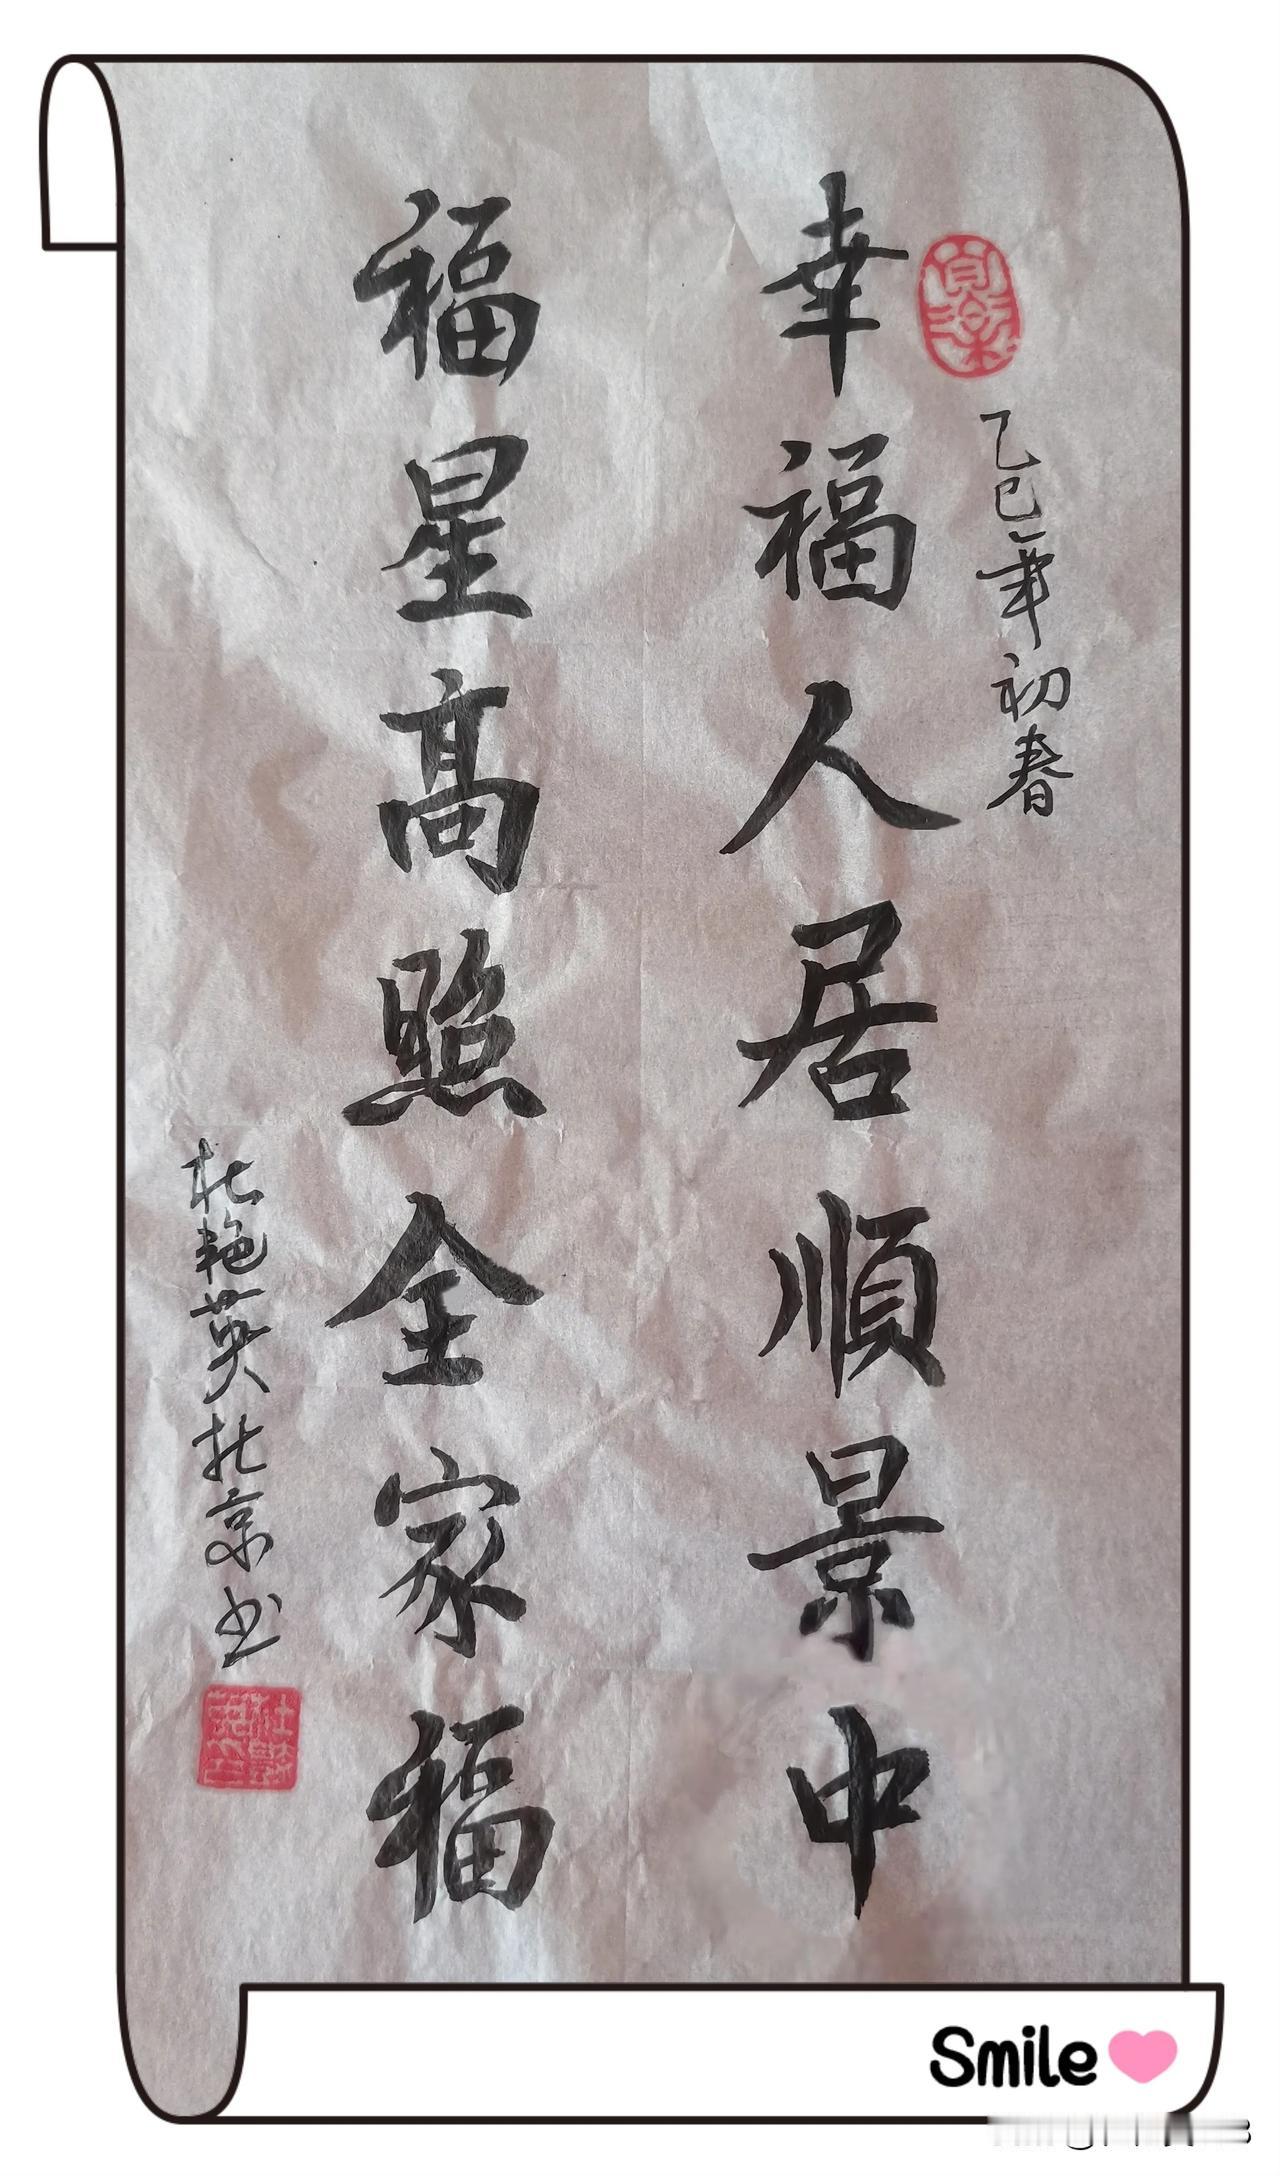 乙巳年初春
幸福人居順景中
福星高照全家福
杜艳英於京书
Smile